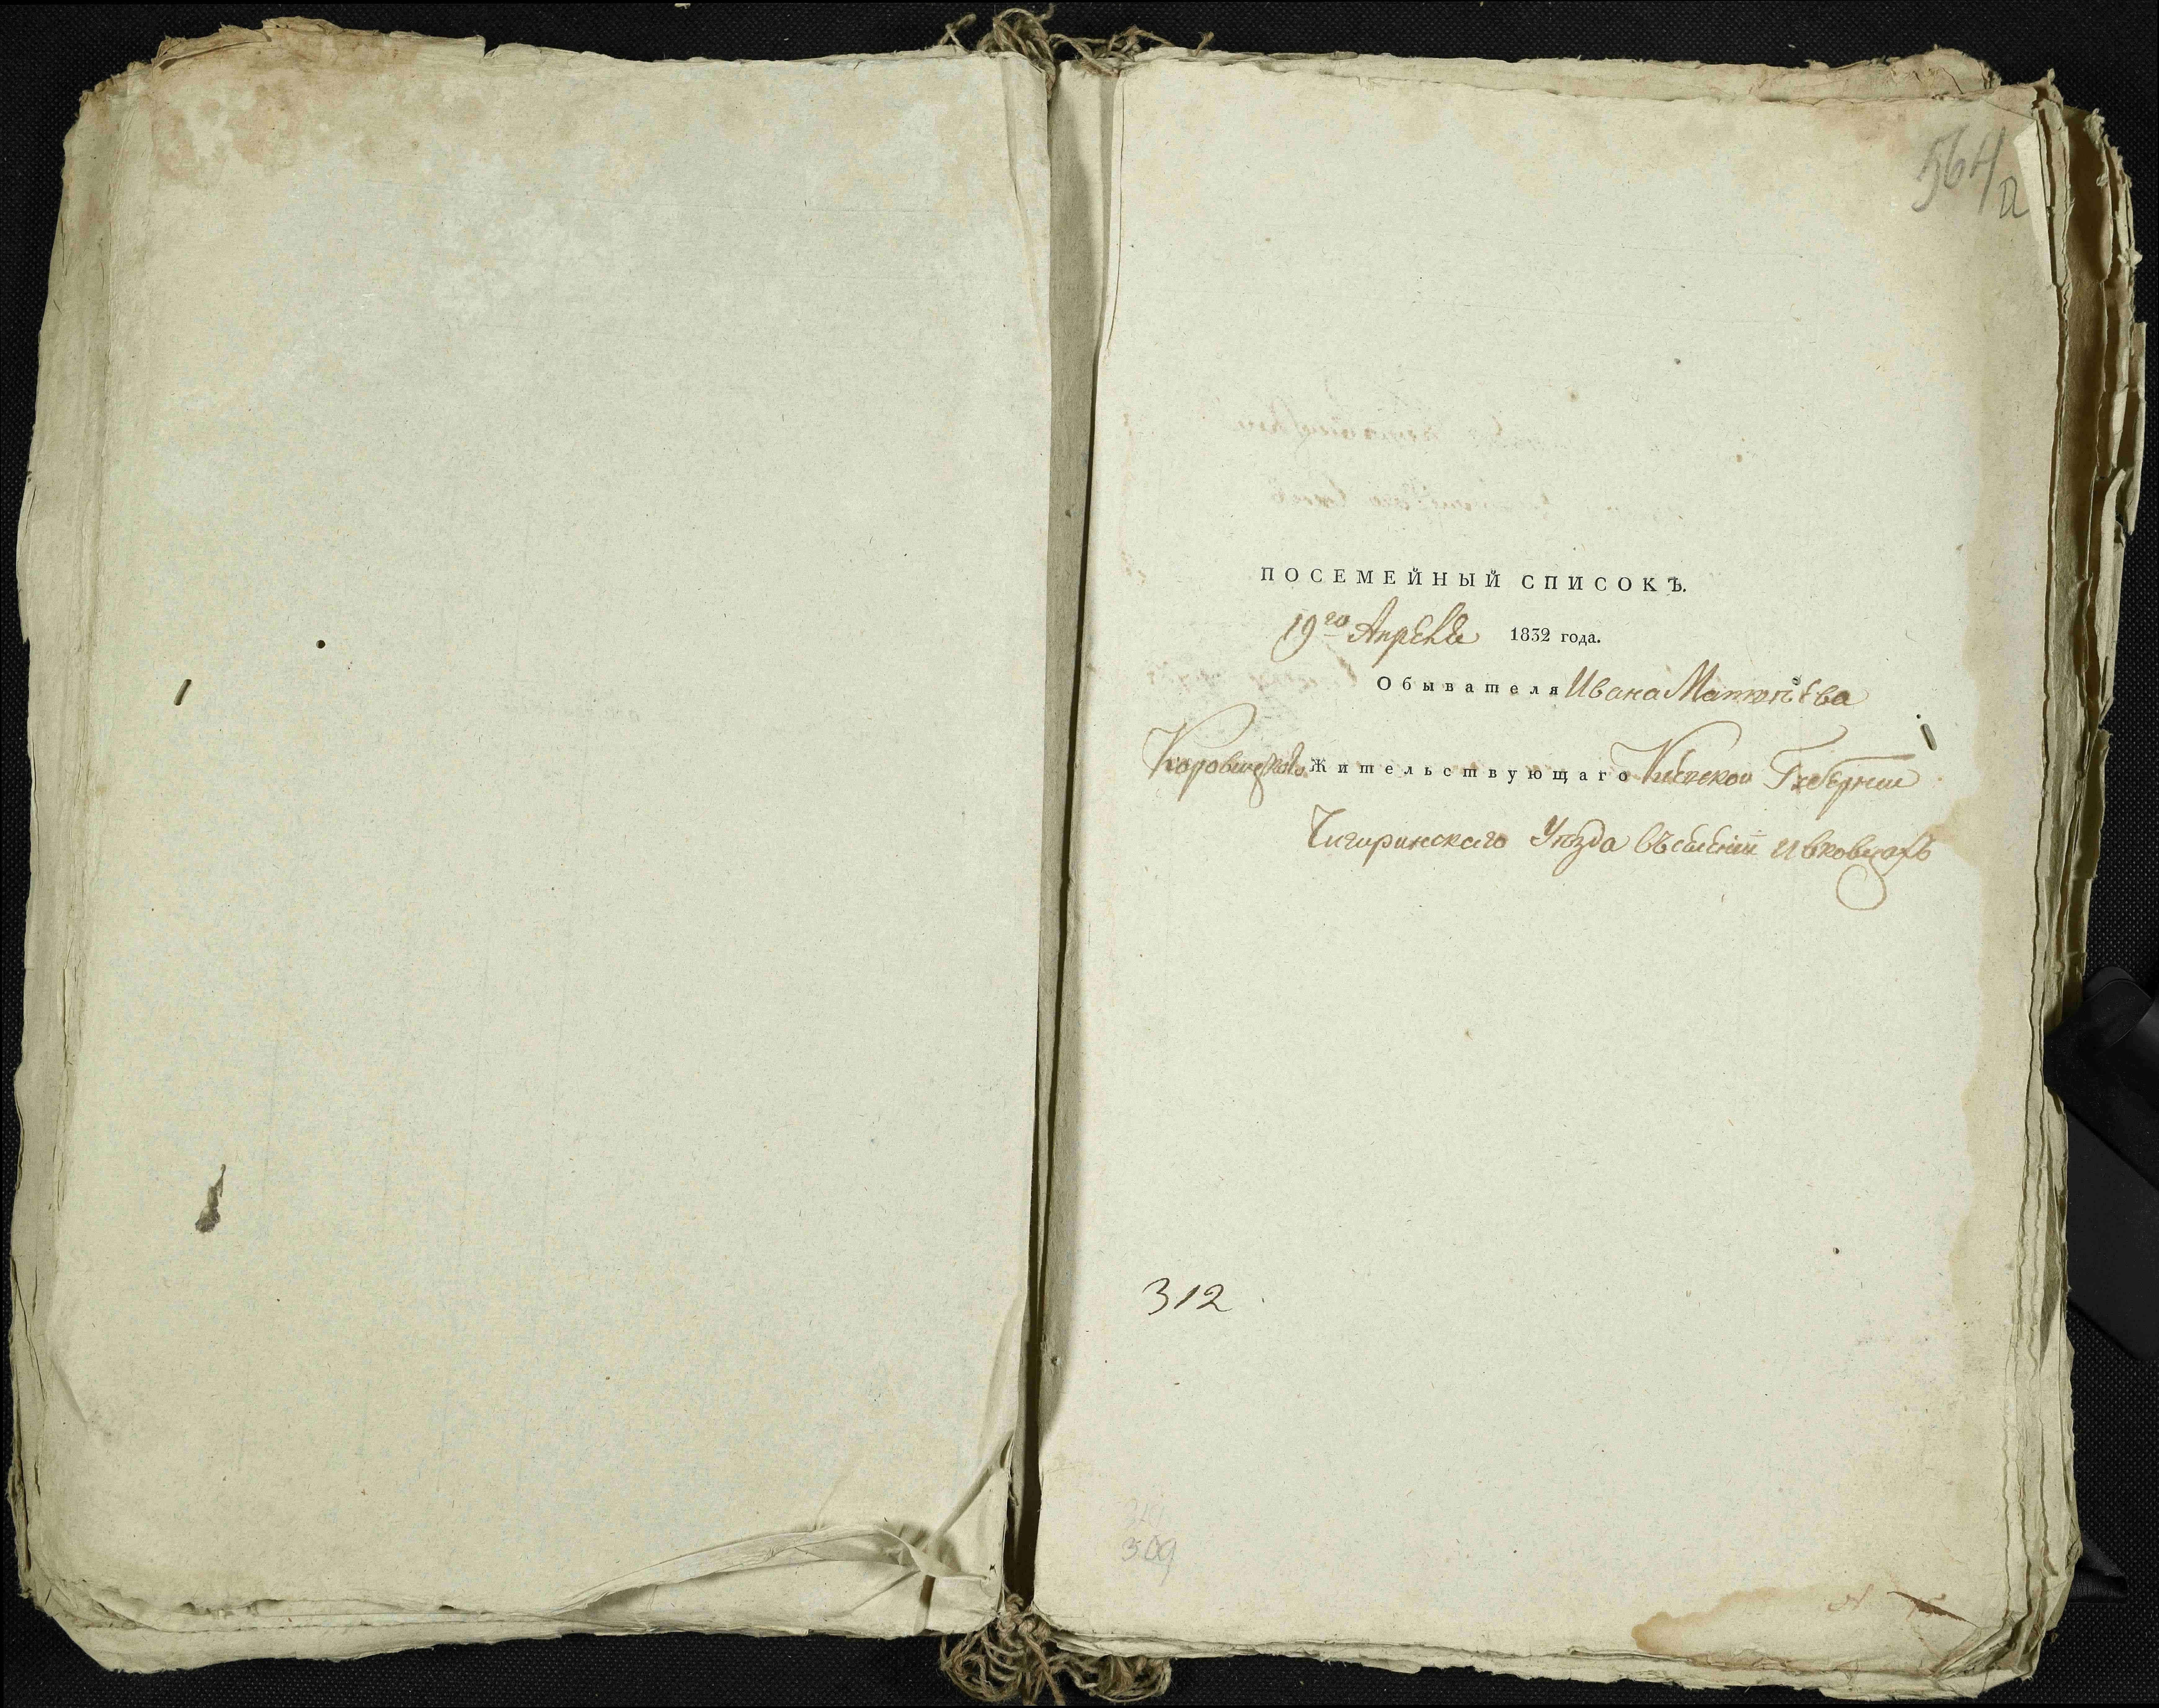 564
ПОСЕМЕЙНЫЙ СПИСОКЪ.
19го Апреля 1832 года.
Обывателя Ивана Матвѣева
Коровицкаго Жительствующаго Кіевской Губерніи
Чигиринскаго Уѣзда въ селеніи Ивковцахъ
312
309